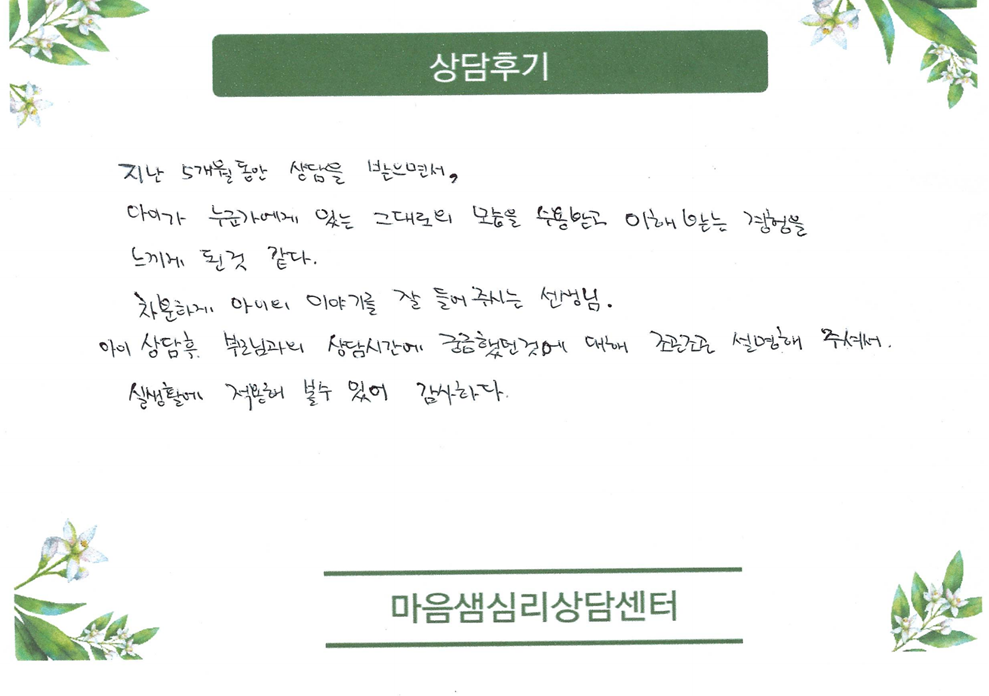 상담후기
지난 5개월동안 상담을 받으면서,
아이가 누군가에게 있는 그대로의 모습을 수용받고 이해 받는 경험을
느끼게 된것 같다.
차분하게 아이의 이야기를 잘 들어 주시는 선생님.
아이 상담후 부모님과의 상담시간에 궁금했던것에 대해 조곤조곤 설명해 주셔서.
실생활에 적용해 볼수 있어 감사하다.
마음샘심리상담센터